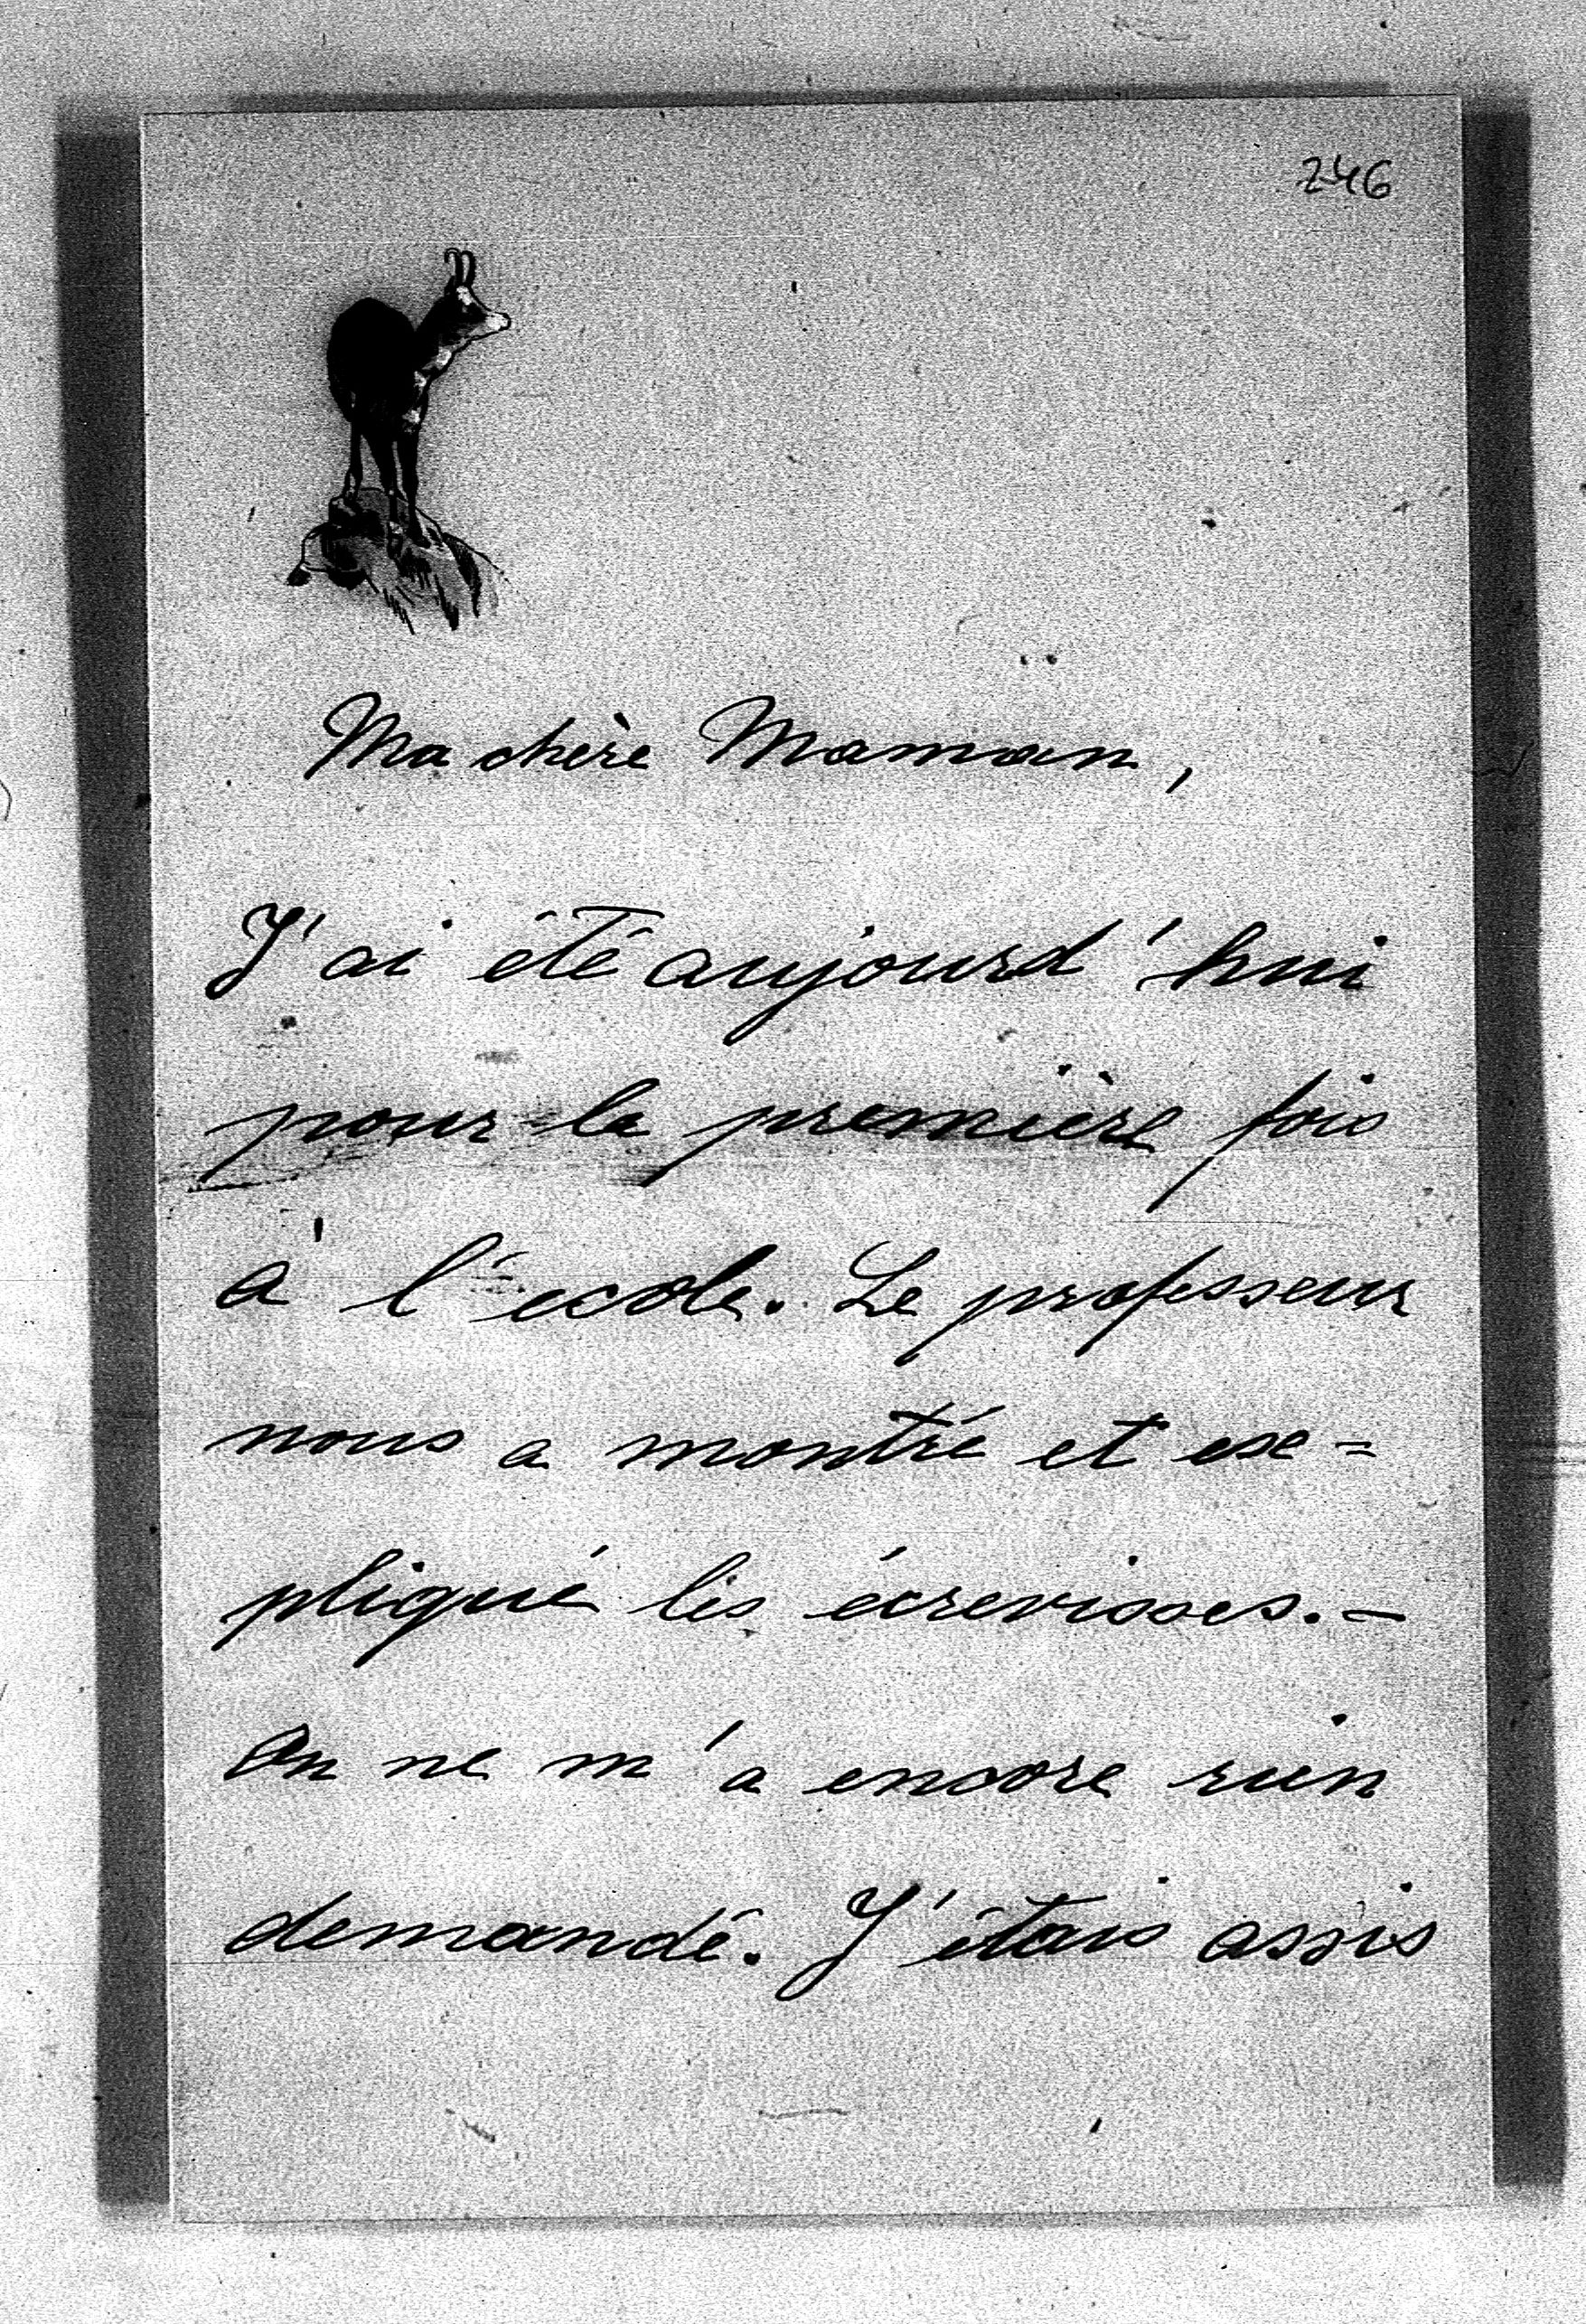 246
Ma chère Maman,
J'ai été aujourd'hui
pour la première fois
à l'école. Le professeur
nous a montré et ex=
pliqué les écrevisses.-
On ne m'a encore rien
demandé. J'étais assis